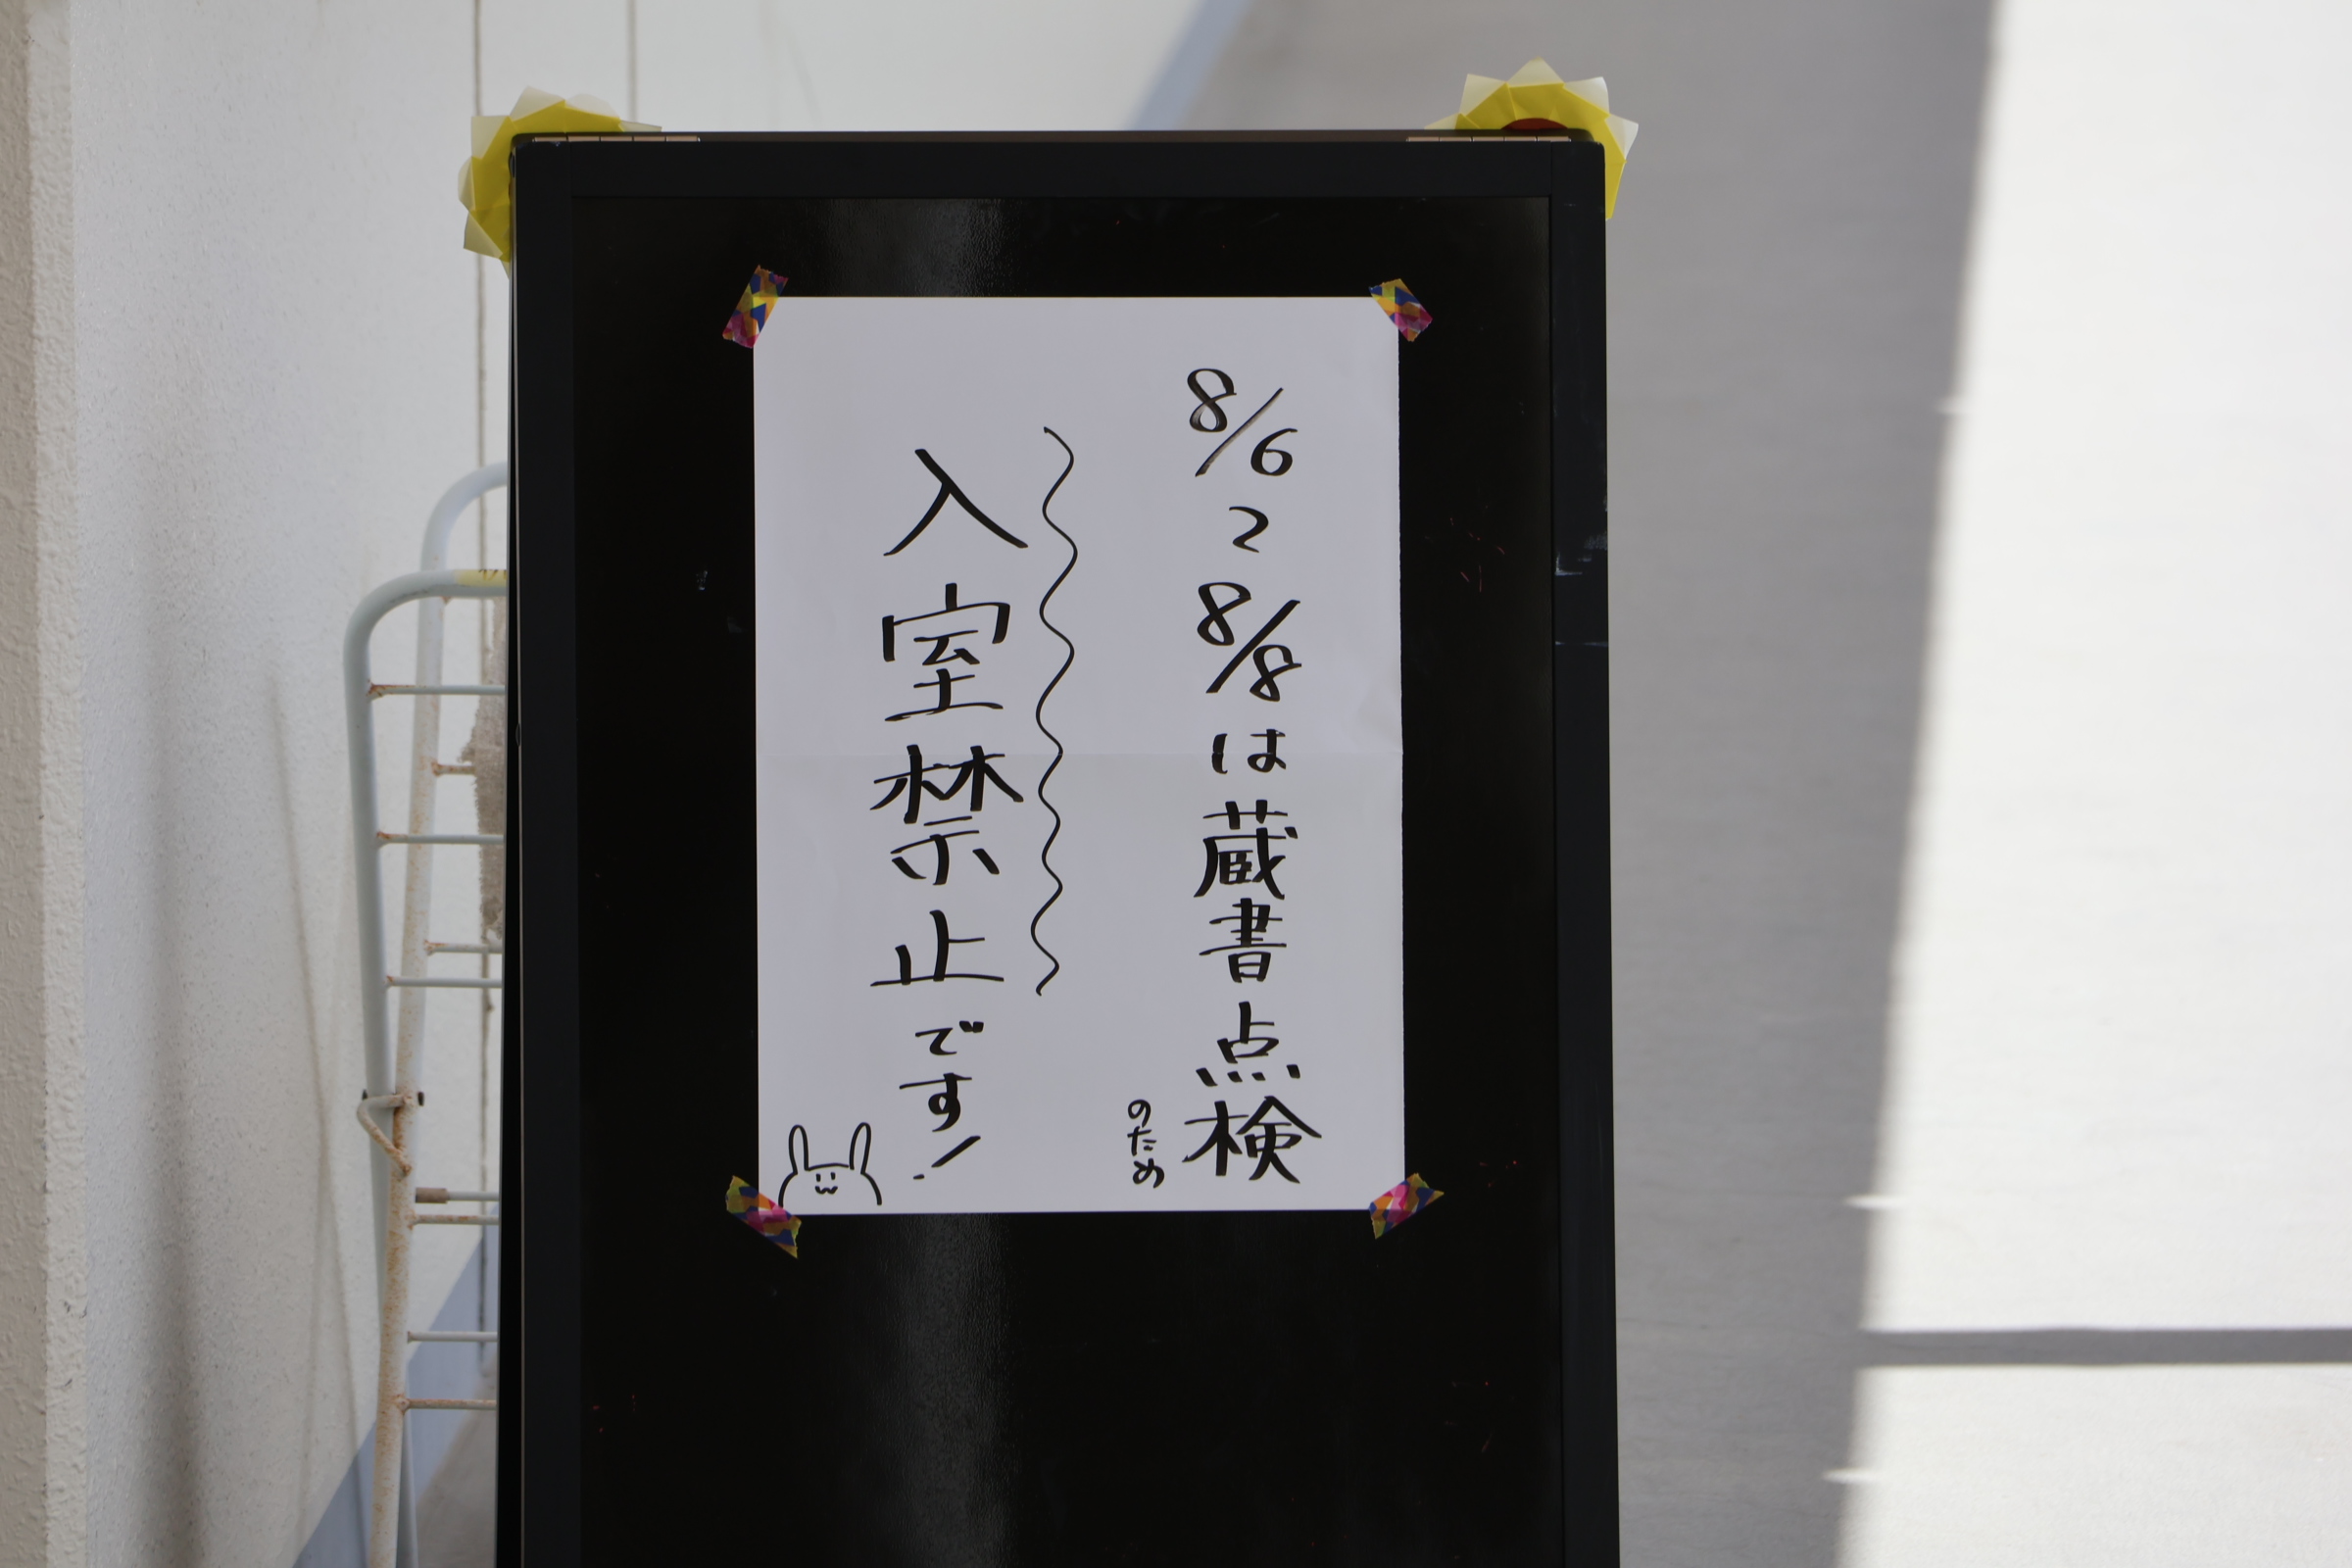 8/6〜8/8は蔵書点検
のため
入室禁止です!